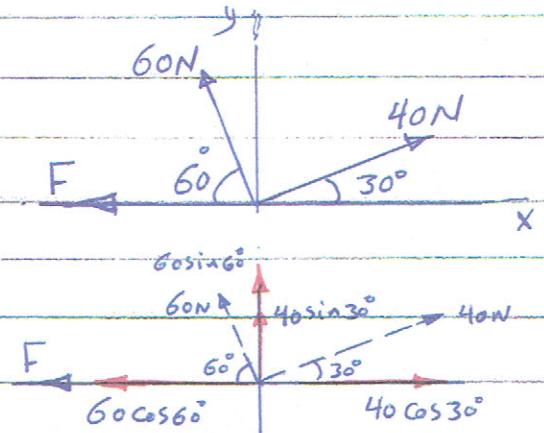 y
60N
40N
F
60°
30°
x
60sin60°
60N
40sin30°
40N
F
60°
30°
60cos60°
40cos30°